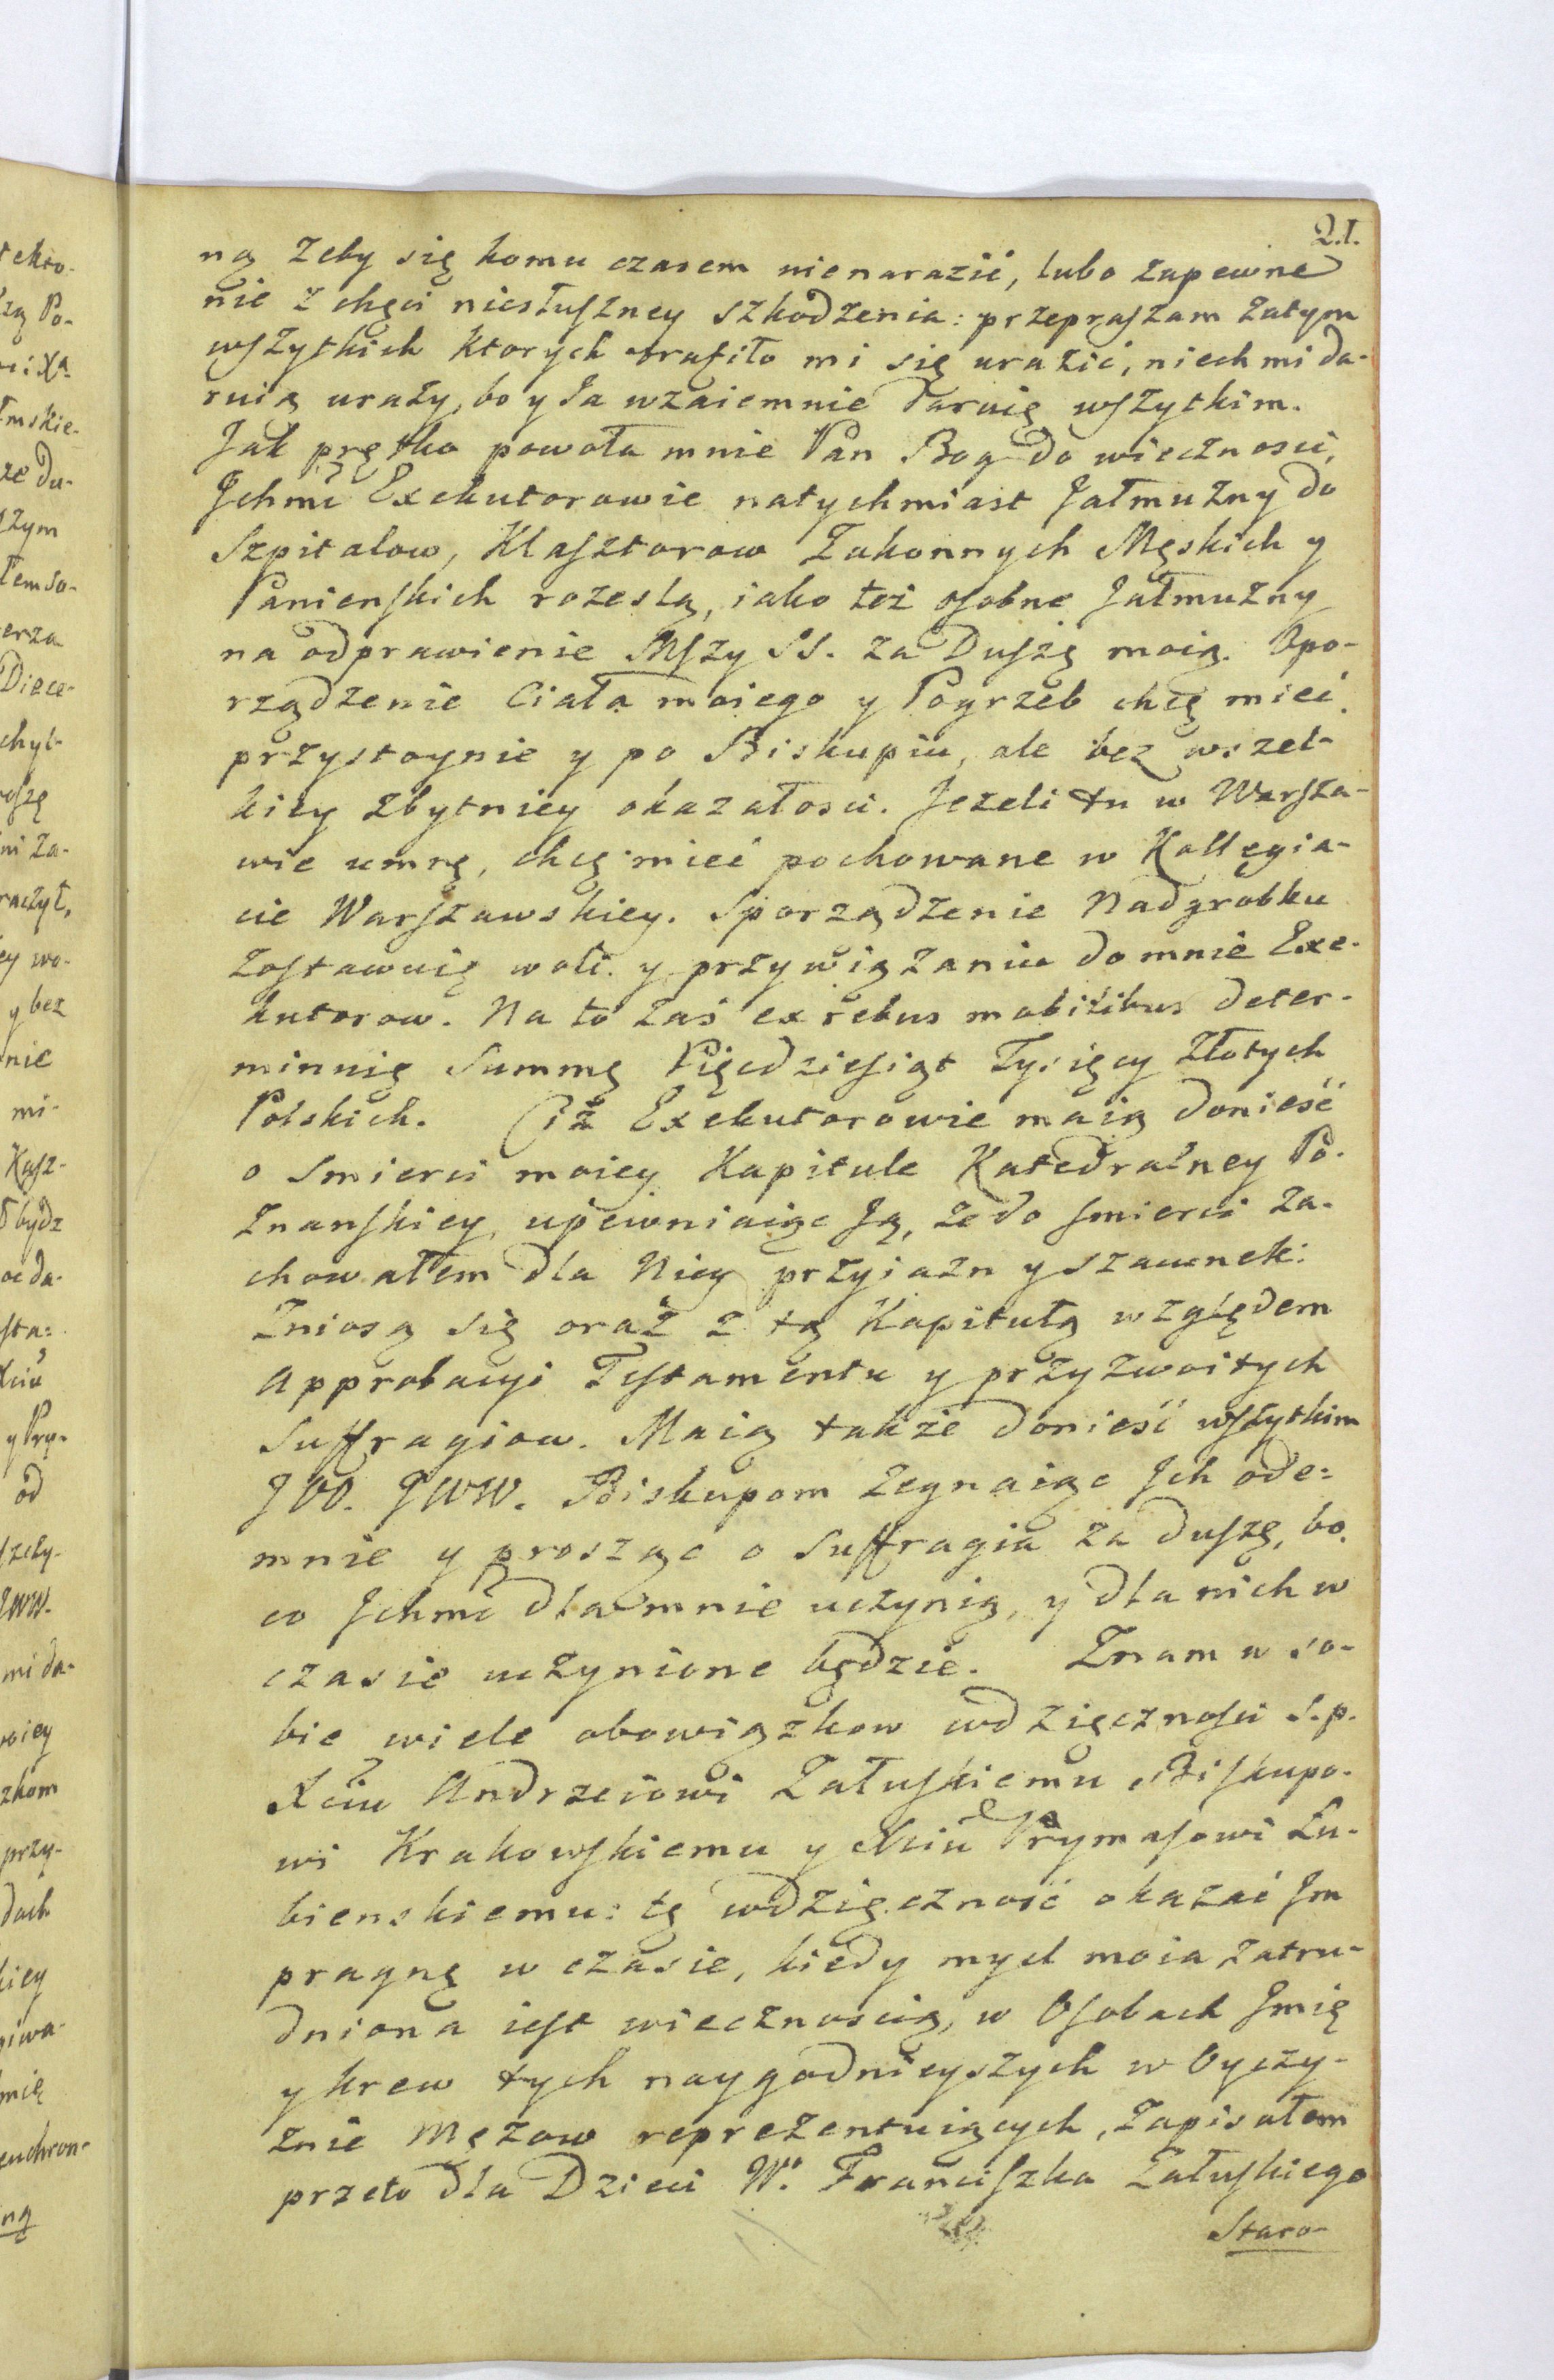 21.
ną żeby się komu czasem nienarazić, lubo zapewne
nie z chęci niesłuszney szkodzenia: przepraszam zatym
wszytkich ktorych trafiło mi się urazić, niech mi da-
ruią urazy, bo y Ja wzaiemnie daruię wszytkim.
Jak prętko powoła mnie Pan Bog do wieczności,
Jchmć Exekutorowie natychmiast Jałmużny do
Szpitalow, Klasztorow Zakonnych Męskich y
Panienskich rozeslą, iako też osobne Jałmużny
na odprawienie Mszy SS. za Duszę moią. Opo-
rządzenie Ciała moiego y Pogrzeb chcę mieć
przystoynie y po Biskupiu, ale bez wszel-
kiey zbytniey okazałosci. Jeżeli tu w Warsza-
wie umrę, chcę mieć pochowane w Kollegia-
cie Warszawskiey. Sporządzenie Nadgrobku
zostawuię woli y przywiązaniu do mnie Exe-
kutorow. Na to zaś ex rebus mobilibus deter-
minuię Summę Pięcdziesiąt Tysięcy Złotych
Polskich. Ciż Exekutorowie maią donieść
o Smierci moiey Kapitule Katedralney Po-
znanskiey, upewniaiąc Ją, że do smierci za-
chowałem dla Niey przyiazn y szacunek:
Zniosą się oraz z tą Kapitułą względem
Approbacyi Testamentu y przyzwoitych
Suffragiow. Maią także donieść wszytkim
JOO. JWW. Biskupom żegnaiąc Jch ode-
mnie y prosząc o Suffragia za duszę, bo
co Jchmć dla mnie uczynią, y dla nich w
czasie uczynione będzie. Znam w so-
bie wiele obowiązkow wdzięcznosci S.p.
Xciu Andrzeiowi Załuskiemu Biskupo-
wi Krakowskiemu y Xciu Prymasowi Łu-
bienskiemu: tę wdzięczność okazać Jm
pragnę w czasie, kiedy mysl moia zatru-
dniona iest wiecznoscią, w Osobach Jmię
y krew tych naygodnieyszych w Oyczy-
znie Mężow reprezentuiących, Zapisałem
przeto dla Dzieci Wo. Franciszka Załuskiego
Staro-